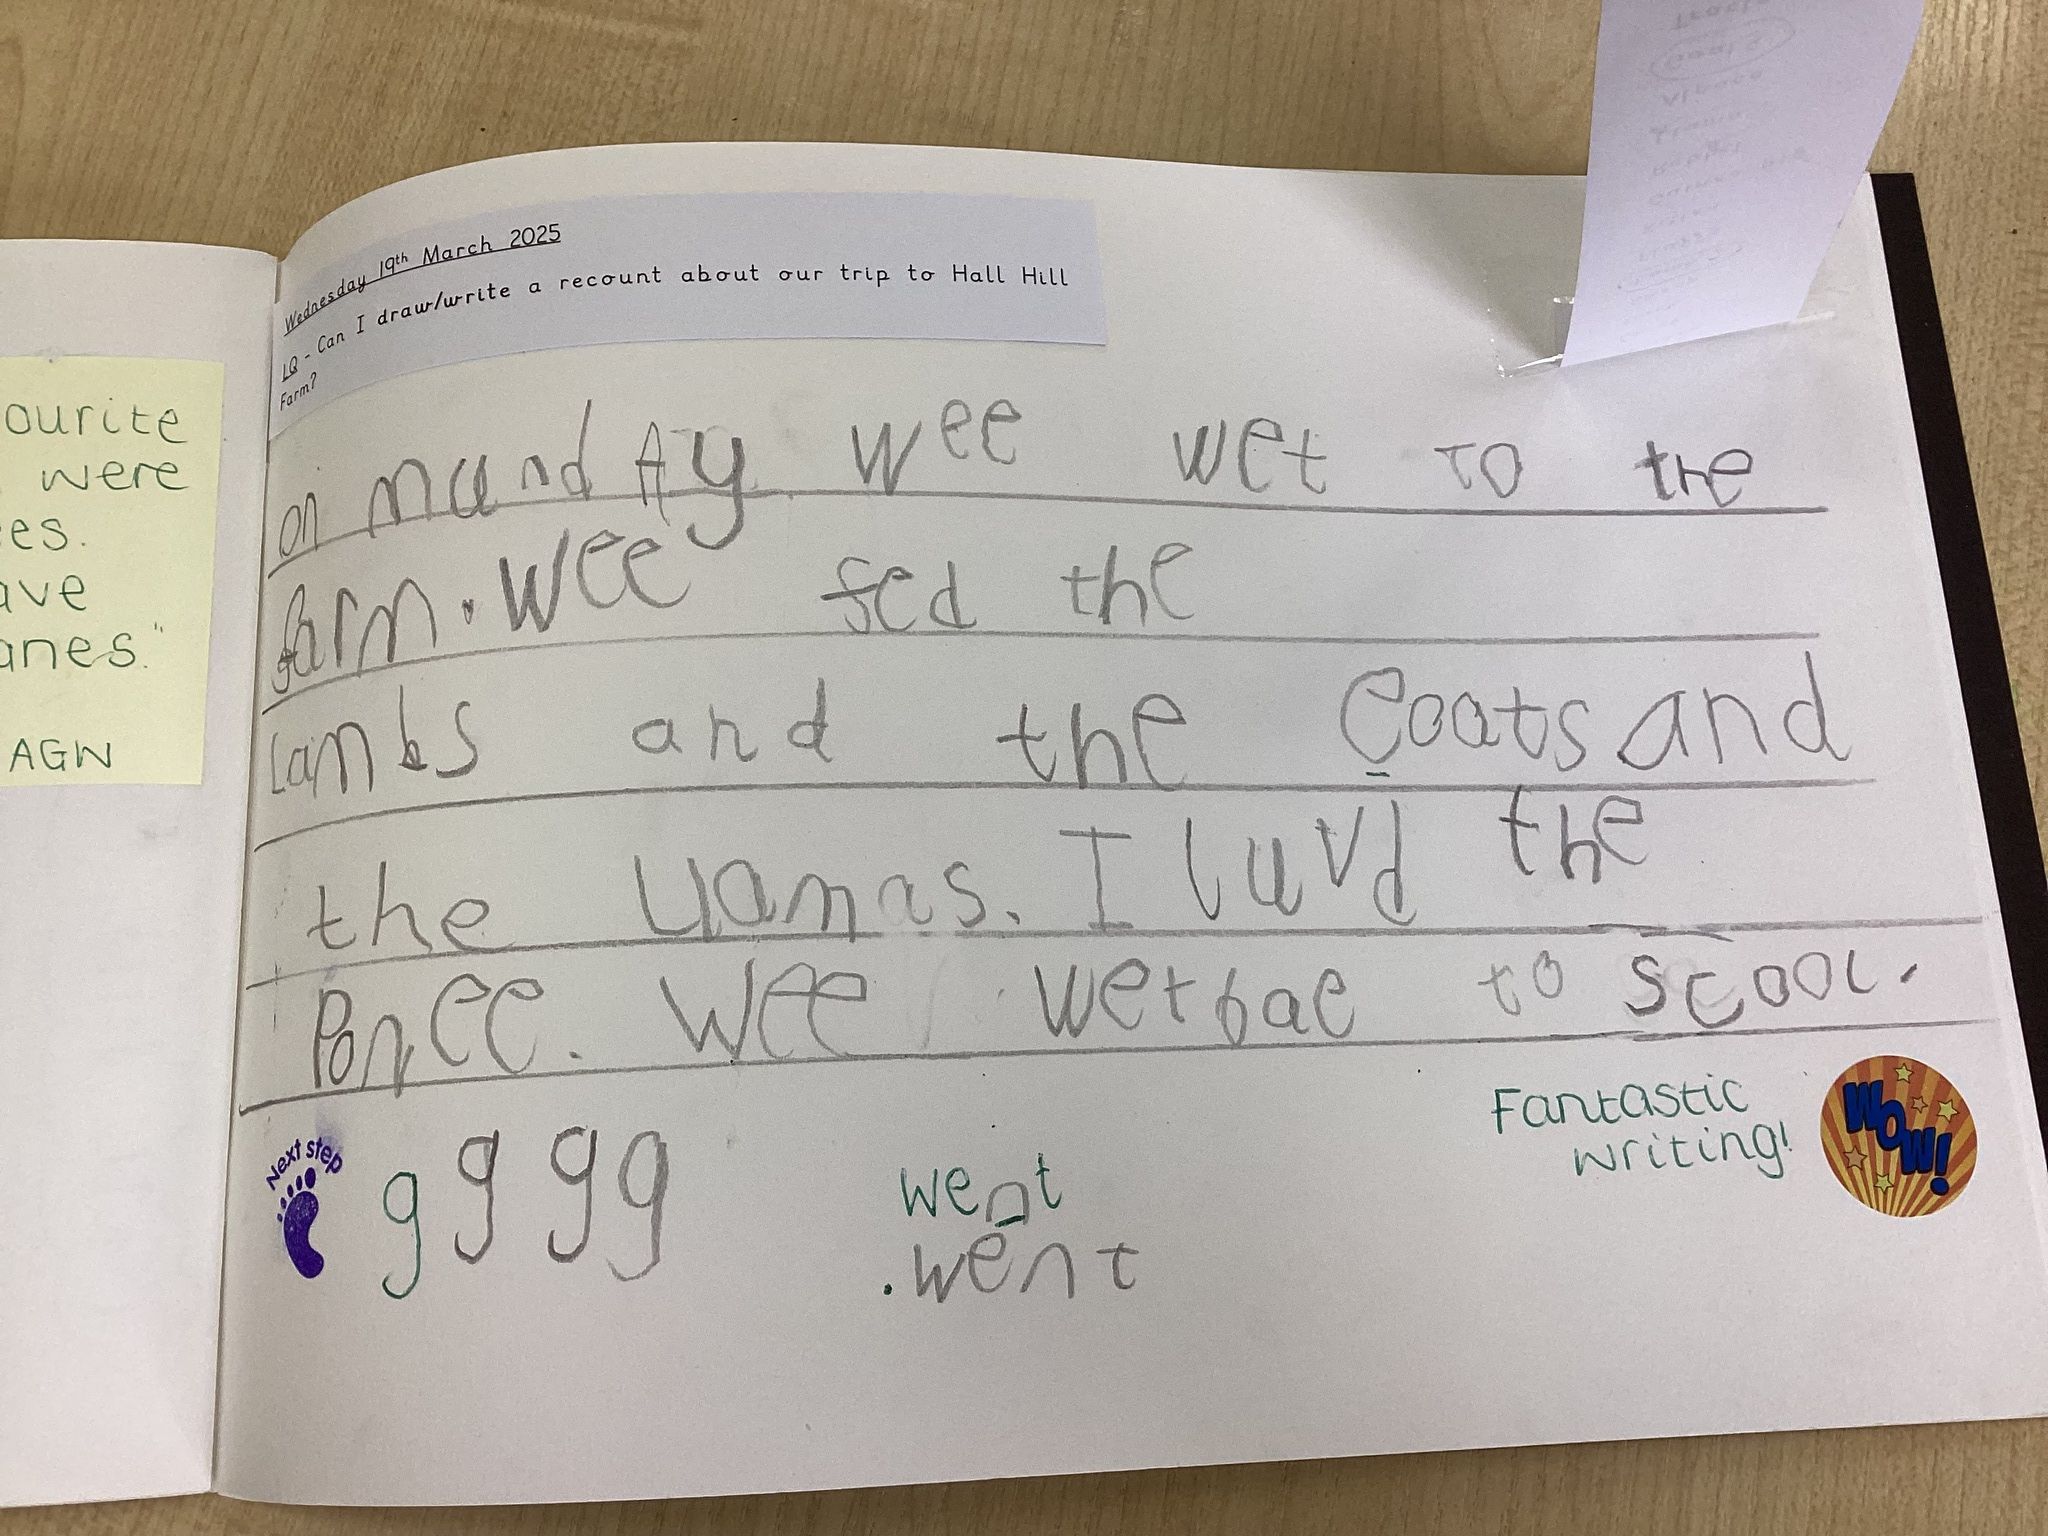 Wednesday 19th March 2025
LQ - Can I draw/write a recount about our trip to Hall Hill
Farm?
ourite
were
es.
ave
anes."
AGW
on mundAy wee wet to the
farm. wee fed the
lambs and the eoats and
the llamas. I luvd the
Ponee. wee wet bae to scool.
Next step
g g g g
went
.went
Fantastic
writing!
WOW!